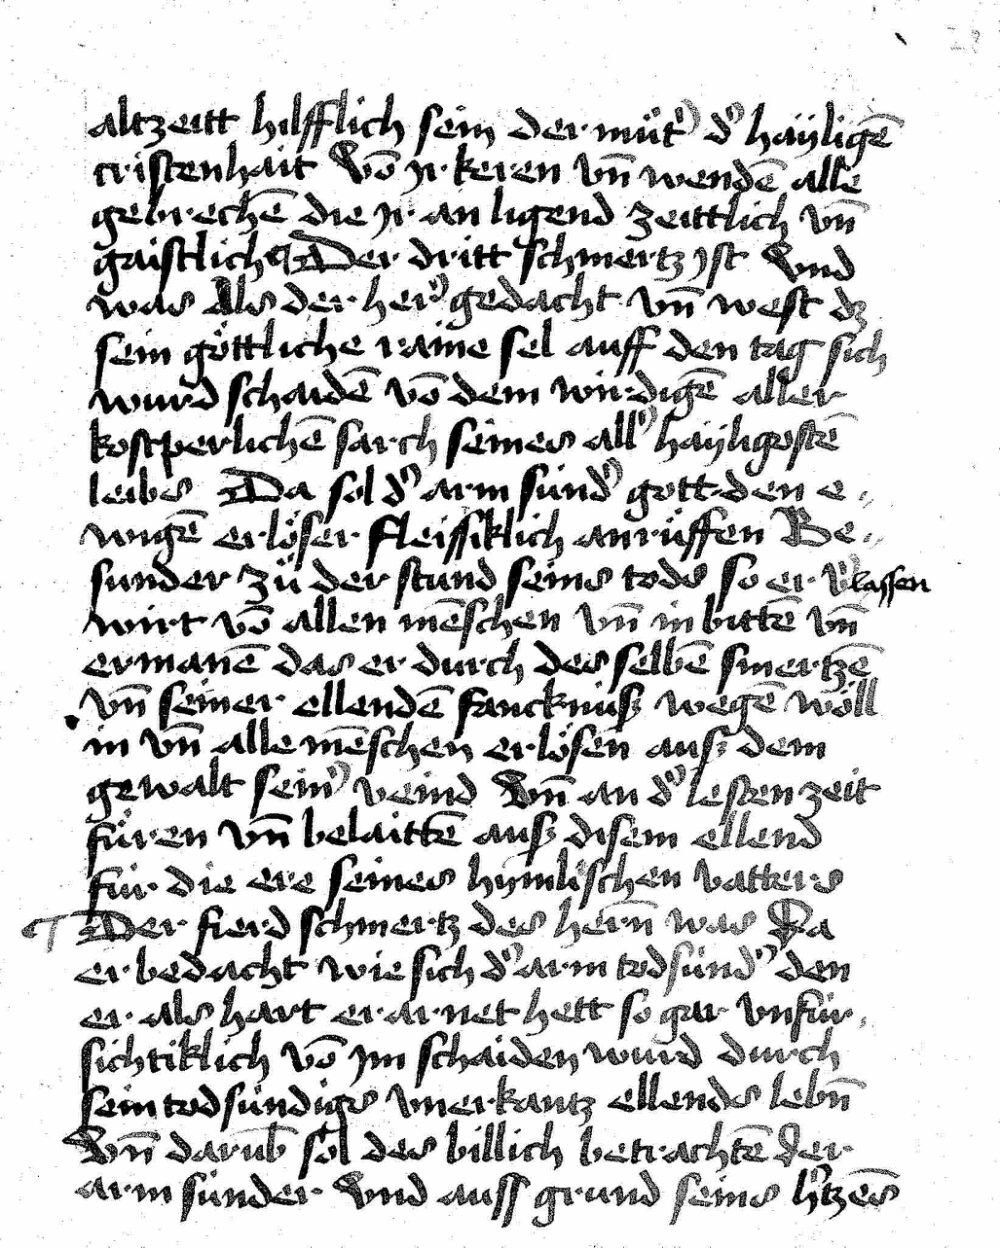 altzeitt hilfflich sein der müt᷑ d᷑ haÿligē
cristenhait Vō jr keren vn̄ wendē alle
gebrechē die jr an ligend zeittlich vn̄
gaistlich ¶ Der dritt schmertz jst Vnd
was Als der her᷑ gedacht vn̄ west dz
sein göttliche raine sel auff den tag sich
wurd schaidē vō dem wirdigē aller
kostperlichē sarch seines all᷑ haÿligostē
leibs Da sol d᷑ arm sünd᷑ gott den e〃
wigē erlöser fleissiklich anrüffen Be〃
sunder zü der stund seins tods so er v᷑lassen
wirt vō allen mēschen vn̄ in bittē vn̄
ermanē das er durch des selbē smertzē
vn̄ seiner ellendē fancknüß wegē wöll
in vn̄ alle mēschen erlösen auß dem
gewalt sein᷑ veind Vn̄ an d᷑ lesten zeit
füren vn̄ belaittē auß disem ellend
für die ere seines hymlischen vatters
¶ Der fierd schmertz des hern̄ was Da
er bedacht wie sich d᷑ arm todsünd᷑ den
er als hart erarnet hett so gar vnfür〃
sichtiklich vō jm schaiden wurd durch
sein todsündigs vnerkantz ellendes lebn̄
Vn̄ darub̄ sol des billich betrachtē der
arm sünder Vnd auss grund seins h᷑tzēs